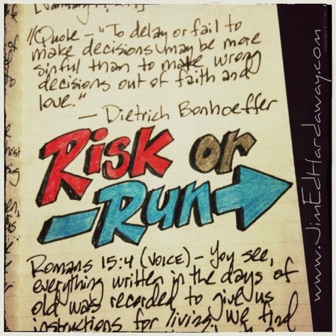 //Quote - "To delay or fail to
make decisions may be more
sinful than to make wrong
decisions out of faith and
love."
- Dietrich Bonhoeffer
Risk or
Run
Romans 15:4 (VOICE) - You see,
everything written in the days of
old was recorded to give us
instructions for living. We find
www.JimEdHardaway.com